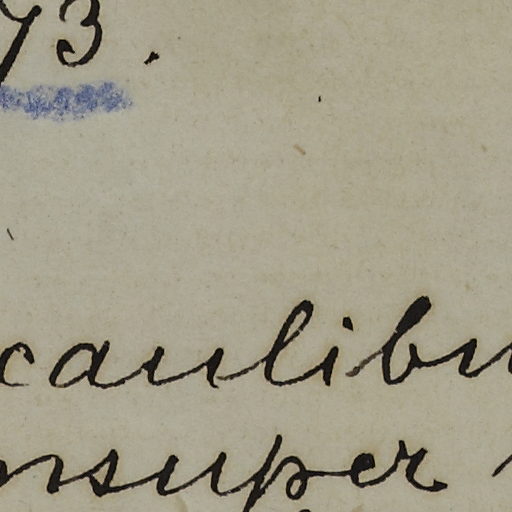 73.
caulibu
nsuper